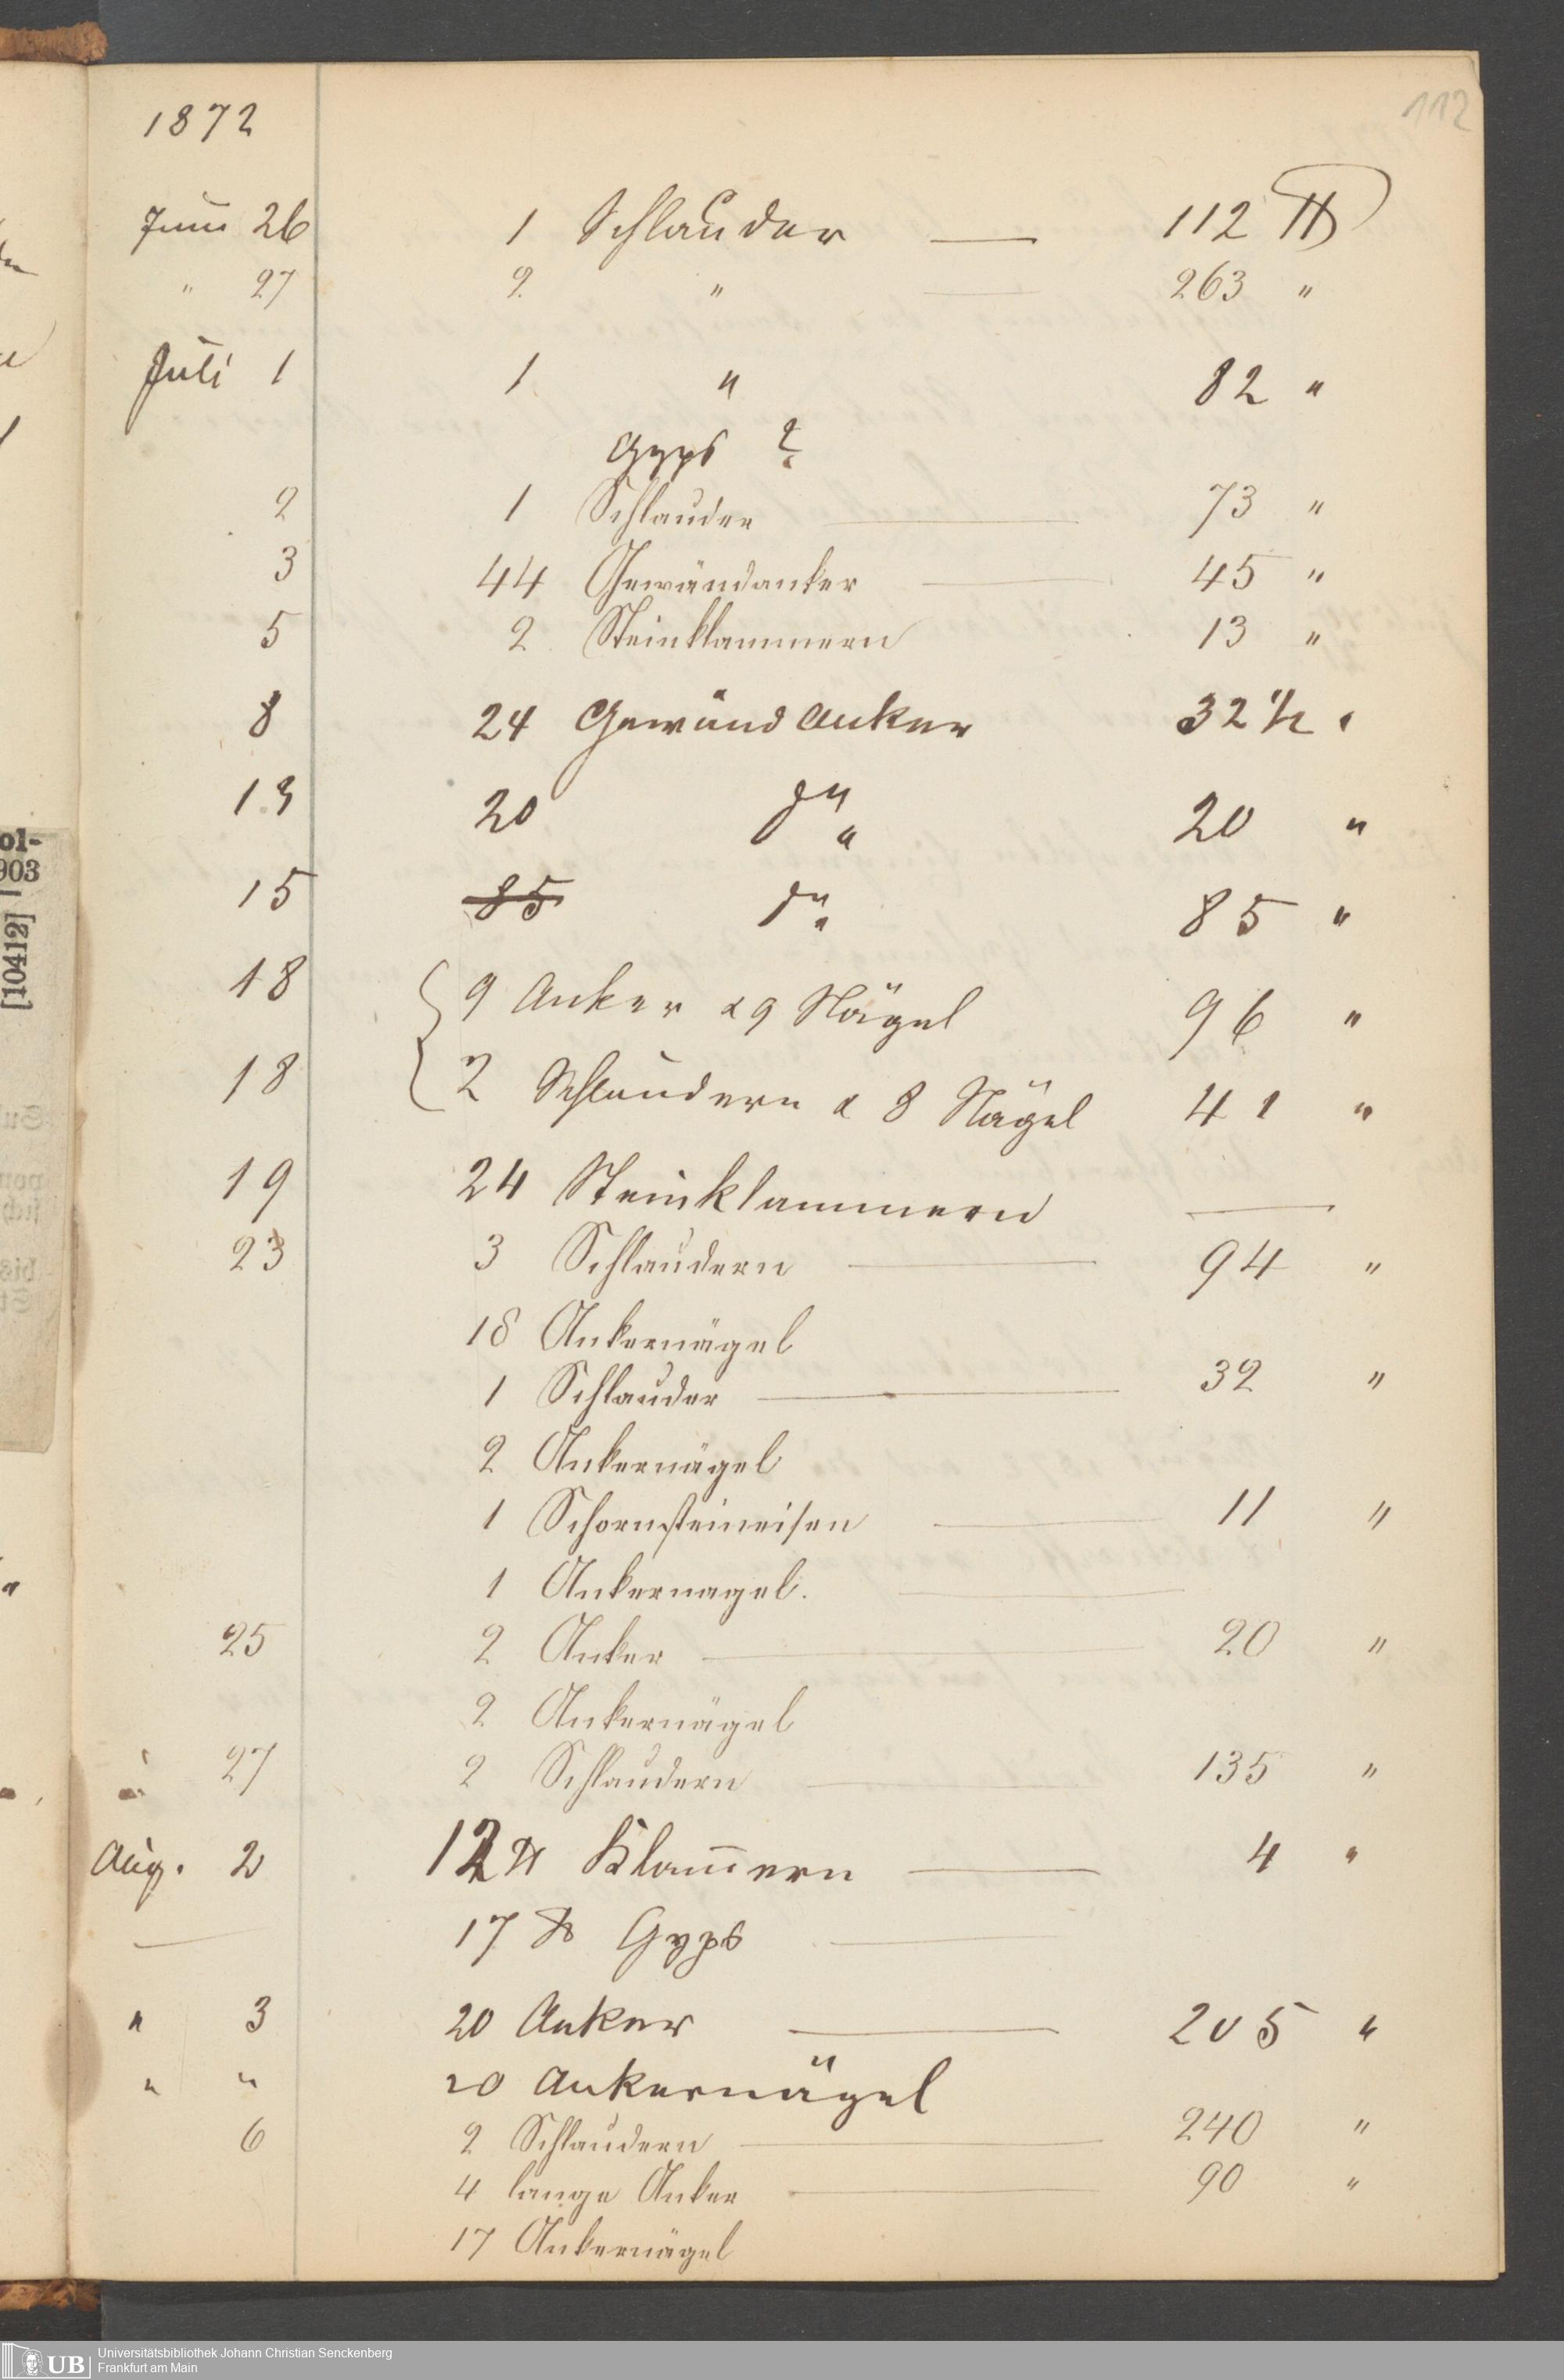 112
1872
Juni 26 1 Schlauder — 112 ℔
" 27 2 " — 263 "
Juli 1 1 " 82 "
Gyps ?
2 1 Schlauder — 73 "
3 44 Gewändanker — 45 "
5 2 Steinklammern 13 "
8 24 Gewändanker 32 1/2 "
13 20 do " 20 "
15 85 do " 85 "
18 9 Anker & 9 Nägel 96 "
18 2 Schlaudern & 8 Nägel 41 "
19 24 Steinklammern —
23 3 Schlaudern — 94 "
18 Ankernägel
1 Schlauder — 32 "
2 Ankernägel
1 Schornsteineisen — 11 "
1 Ankernagel. —
25 2 Anker — 20 "
2 Ankernägel
" 27 2 Schlaudern — 135 "
Aug. 2 12 ℔ Klam̄ern — 4 "
— 17 ℔ Gyps —
" 3 20 Anker — 205 "
" " 20 Ankernägel
6 2 Schlaudern — 240 "
4 lange Anker — 90 "
17 Ankernägel
ol-
903
[10412]
UB Universitätsbibliothek Johann Christian Senckenberg
Frankfurt am Main